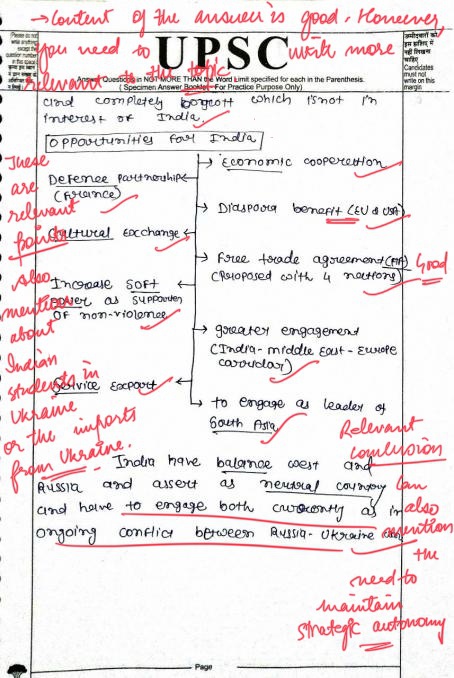 → Content of the answer is good. However,
you need to write more
relevant to the topic
UPSC
Please do not write anything except the question number in this space
उम्मीदवारों को इस हाशिए में नहीं लिखना चाहिए
Candidates must not write on this margin
Answer Questions in NOT MORE THAN the Word Limit specified for each in the Parenthesis.
( Specimen Answer Booklet - For Practice Purpose Only)
and completely boycott which is not in
interest of India.
Opportunities for India
→ Economic cooperation
Defence partnership
(France)
→ Diaspora benefit (EU & USA)
Cultural Exchange
→ Free trade agreement (FTA)
(Proposed with 4 nations)
Good
Increase SOFT
power as supporter
of non-violence
→ greater engagement
(India - middle East - Europe
corridor)
Service Export
→ to engage as leader of
South Asia
These
are
relevant
points
Also
mention
about
Indian
students in
Ukraine
or the imports
from Ukraine.
Relevant
conclusion
India have balance west and
Russia and assert as neutral country
and have to engage both currently as in
ongoing conflict between Russia - Ukraine
Can
also
mention
the
need to
maintain
strategic autonomy
Page